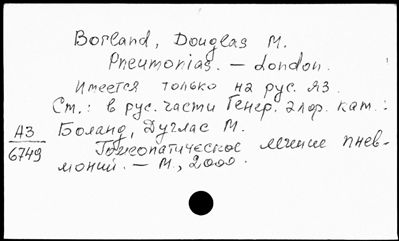 Borland, Douglas M.
Pneumonias. – London.
Имеется только на рус. яз.
См.: в рус. части Генер. алф. кат.:
АЗ Боланд, Дуглас М.
6749 Гомеопатическое лечение пнев-
моний. – М., 2000.